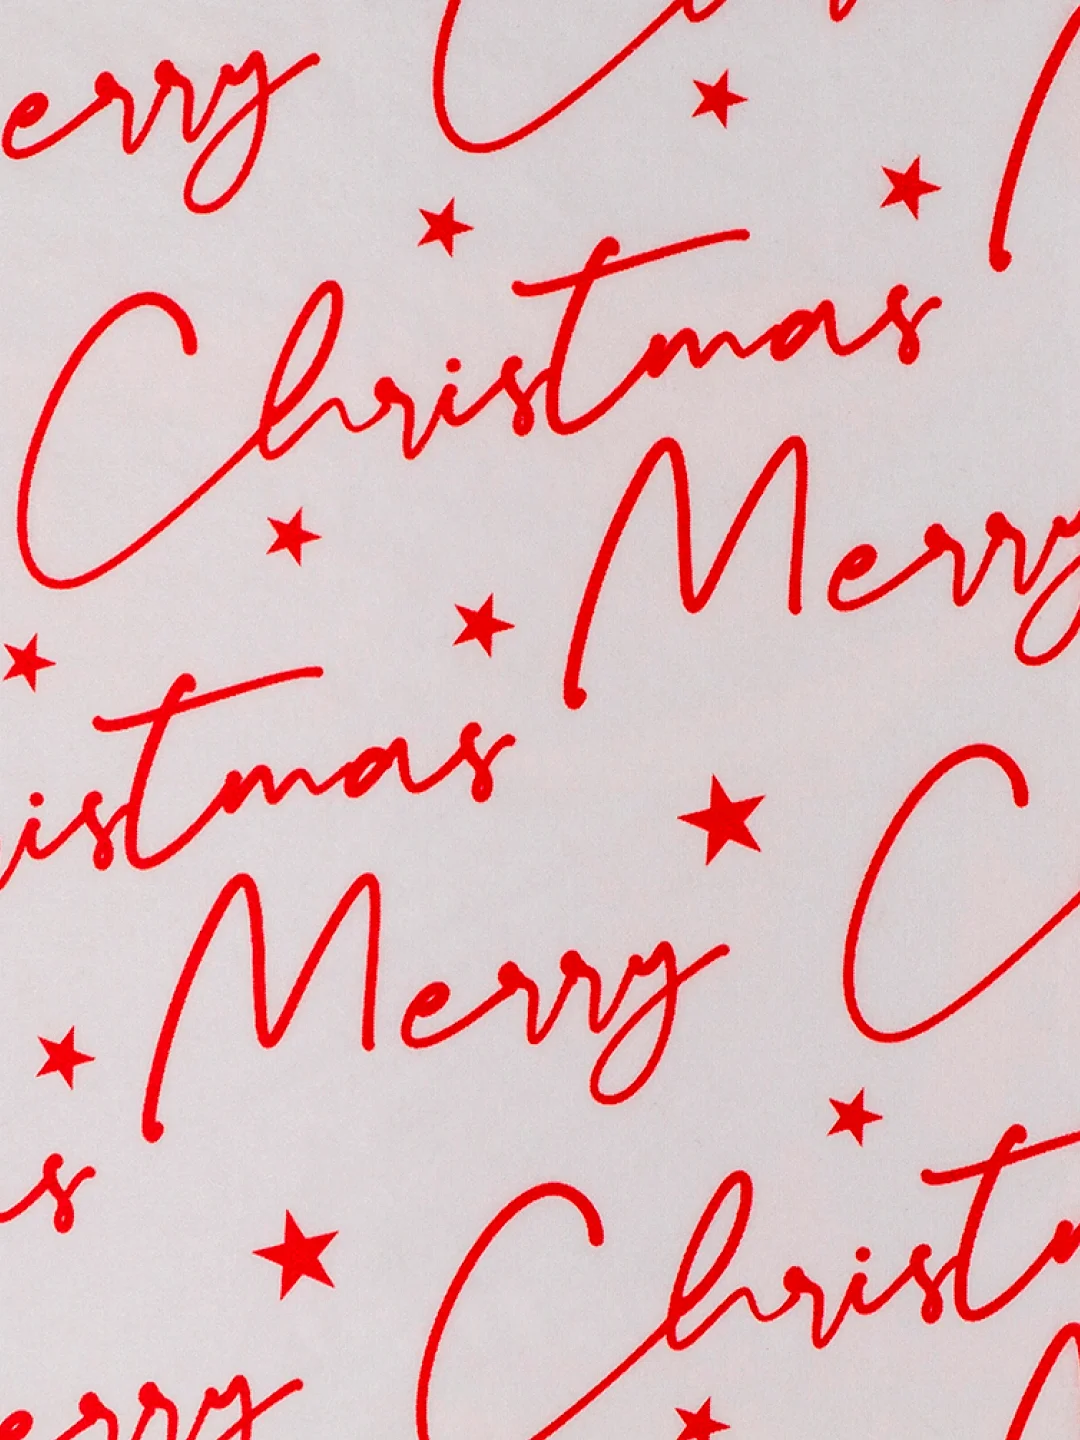 erry C
Christmas
Merry
istmas
Merry C
s
Christm
erry